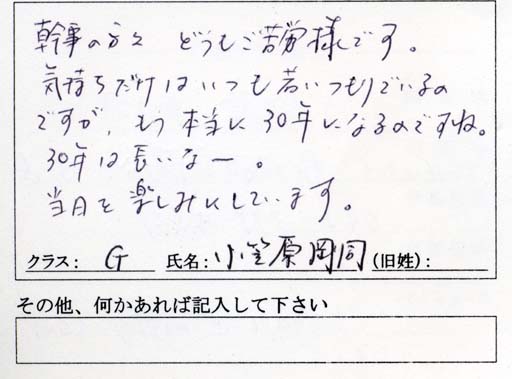 幹事の方々 どうもご苦労様です。
気持ちだけはいつも若いつもりでいるの
ですが、もう本当に30年になるのですね。
30年は長いなー。
当日を楽しみにしています。
クラス: G 氏名: 小笠原 岡同 (旧姓):
その他、何かあれば記入して下さい